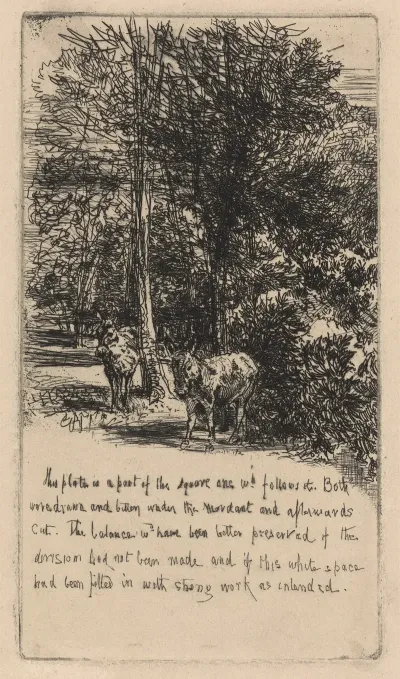 This plate is a part of the square one wh follows it. Both
were drawn and bitten under the mordant and afterwards
cut. The balance wd have been better preserved if the
division had not been made and if this white space
had been filled in with strong work as intended.